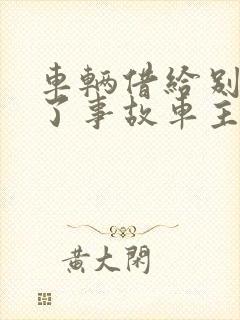 車輛借給別
了事故車主
黃大閑